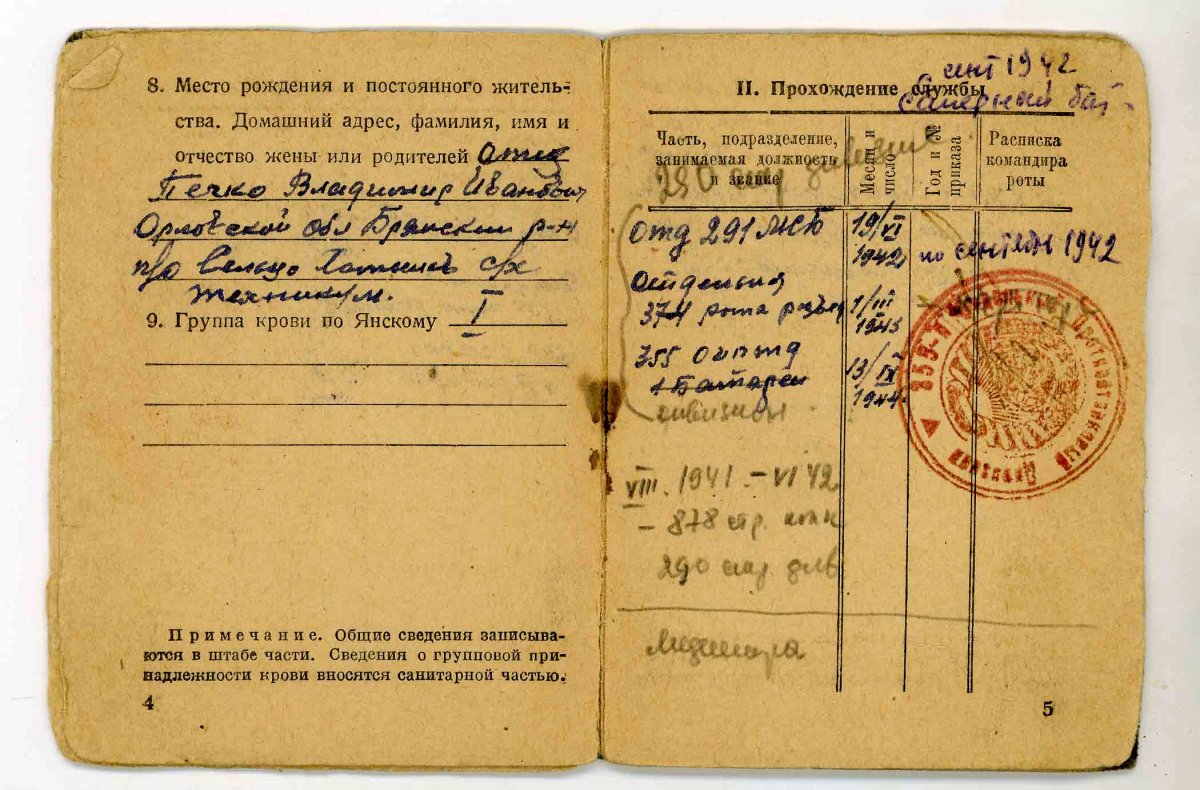 8. Место рождения и постоянного житель-
ства. Домашний адрес, фамилия, имя и
отчество жены или родителей отец
Печко Владимир Иванович
Орловской обл Брянский р-н
п/о Сельцо с/х
техникум.
9. Группа крови по Янскому I
Примечание. Общие сведения записыва-
ются в штабе части. Сведения о групповой при-
надлежности крови вносятся санитарной частью.
4
сент 1942
Саперный бат.
II. Прохождение службы
Часть, подразделение,
занимаемая должность
и звание
Месяц и
число
Год и №
приказа
Расписка
командира
роты
290
отд 291 МСБ 19/VI
1942 по сентябрь 1942
Отдельная
374 рота развед 1/III
1943
355 оиптд
1 Батарея 13/IX
1944
дивизион
VIII. 1941 – VI 42
– 878 стр. полк
290 стр. див
5